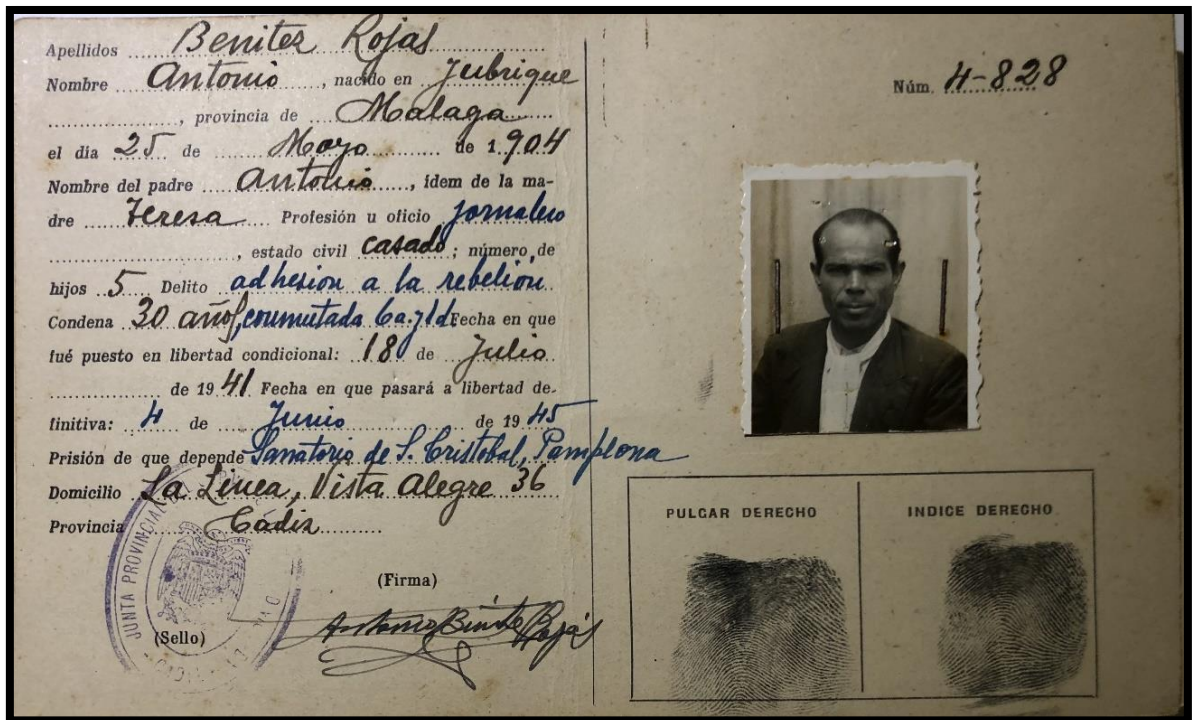 Apellidos Benitez Rojas
Nombre Antonio, nacido en Jubrique
, provincia de Malaga
el día 25 de Mayo de 1.904
Nombre del padre Antonio, idem de la ma-
dre Teresa Profesión u oficio jornalero
, estado civil casado; número de
hijos 5 Delito adhesion a la rebelion
Condena 30 años, conmutada 6a. y 1d. Fecha en que
fué puesto en libertad condicional: 18 de Julio
de 1941 Fecha en que pasará a libertad de-
finitiva: 4 de Junio de 1945
Prisión de que depende Sanatorio de S. Cristobal, Pamplona
Domicilio La Linea, Vista Alegre 36
Provincia Cádiz
JUNTA PROVINCIAL
(Sello)
(Firma)
Antonio Benito Rojas
Núm. 4-828
PULGAR DERECHO
INDICE DERECHO